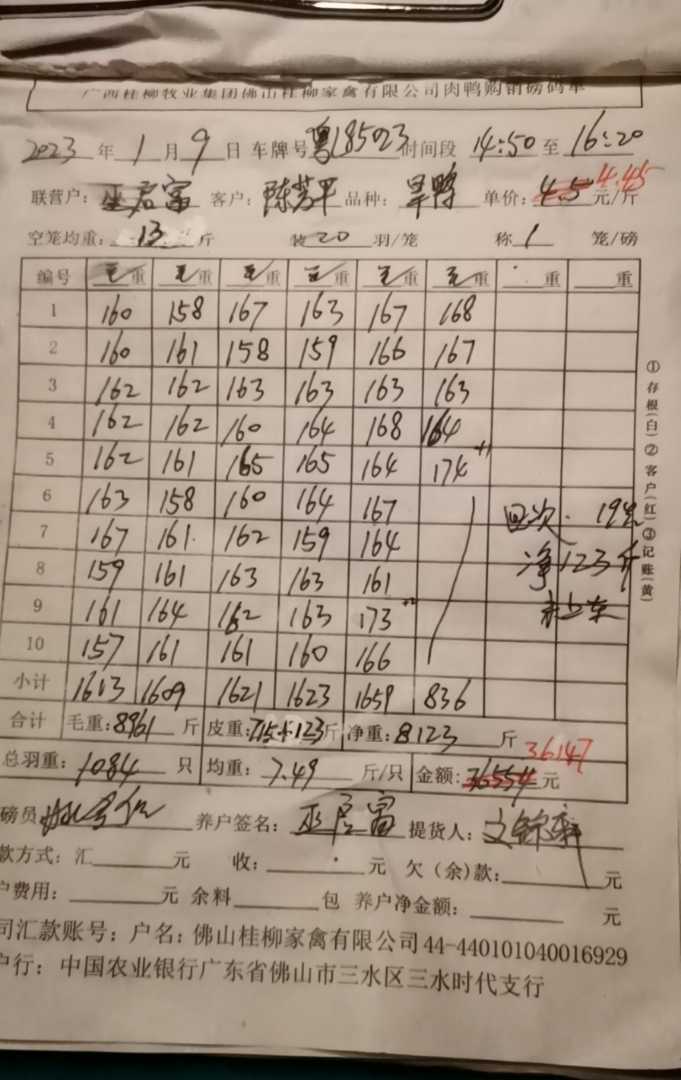 广西桂柳牧业集团佛山桂柳家禽有限公司肉鸭购销磅码单
2023年1月9日 车牌号粤185023时间段 14:50至16:20
联营户：巫启富 客户：陈芳平 品种：旱鸭 单价：4.5 4.45元/斤
空笼均重：13斤 装20羽/笼 称1笼/磅
编号 毛重 毛重 毛重 毛重 毛重 毛重 重 重
1 160 158 167 163 167 168
2 160 161 158 159 166 167
3 162 162 163 163 163 163
4 162 162 160 164 168 164
5 162 161 165 165 164 174 +1
6 163 158 160 164 167
7 167 161 162 159 164
8 159 161 163 163 161
9 161 164 162 163 173 +2
10 157 161 161 160 166
小计 1613 1609 1621 1623 1659 836
回次 19只
净123斤
未上车
合计 毛重：8961斤 皮重：715+123斤 净重：8123斤
总羽重：1084只 均重：7.49斤/只 金额：36554元 36147
磅员 养户签名：巫启富 提货人：文锦辉
款方式：汇 元 收： 元 欠（余）款： 元
户费用： 元 余料 包 养户净金额： 元
司汇款账号：户名：佛山桂柳家禽有限公司44-440101040016929
户行：中国农业银行广东省佛山市三水区三水时代支行
①存根(白)②客户(红)③记账(黄)